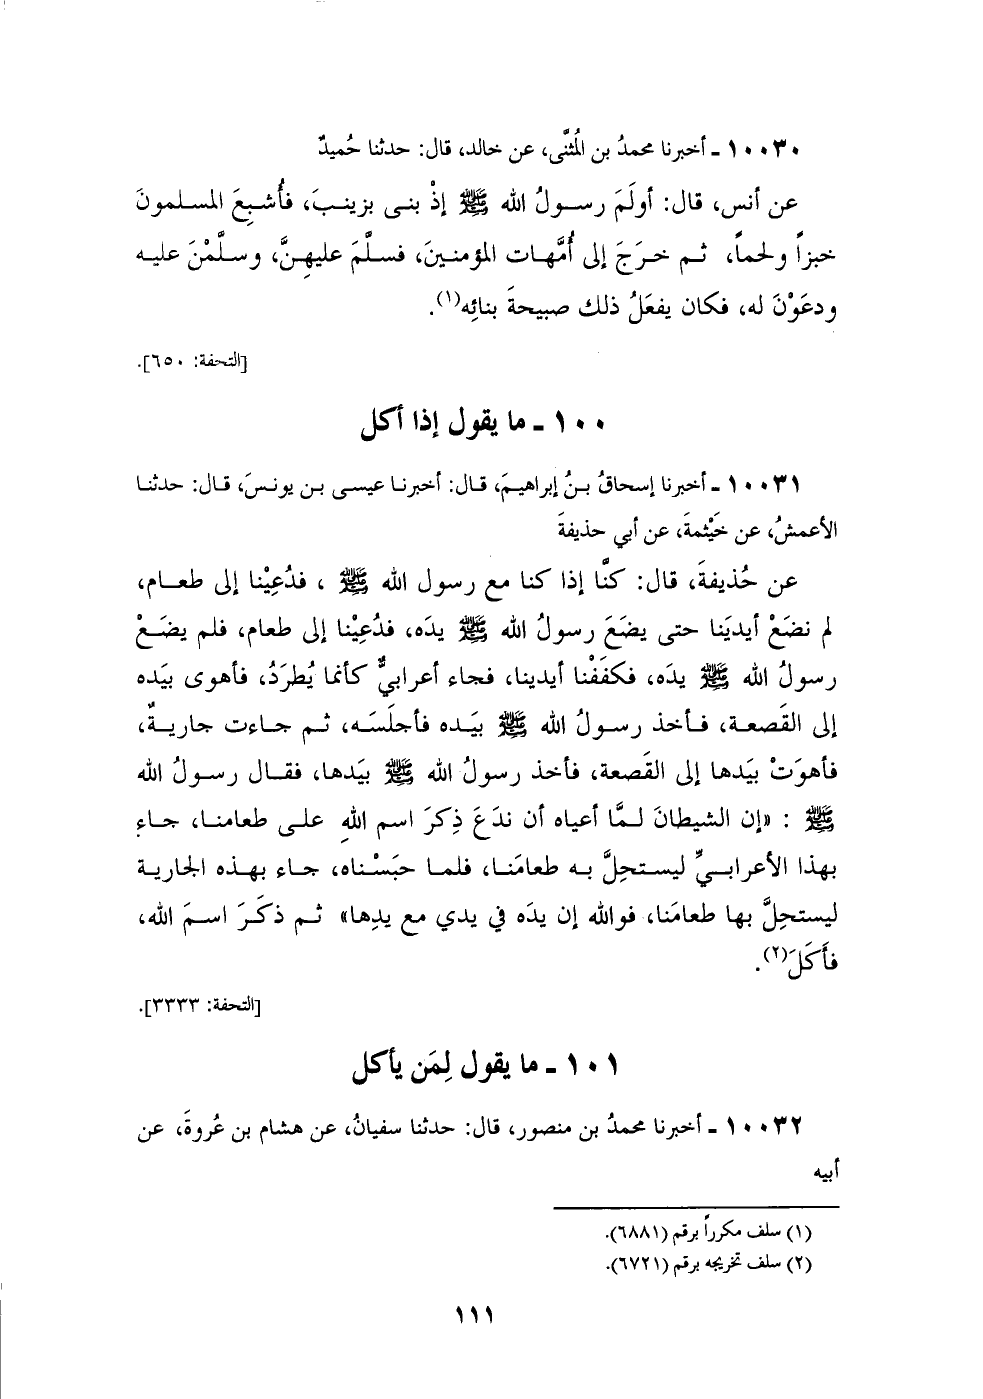 ١٠٠٣٠ ـ أخبرنا محمدُ بن المُثنَّى، عن خالد، قال: حدثنا حُميدٌ
عن أنس، قال: أولَمَ رسولُ الله ﷺ إذْ بنى بزينبَ، فأُشبِعَ المسلمونَ
خبزاً ولحماً، ثم خرَجَ إلى أُمَّهات المؤمنينَ، فسلَّمَ عليهِنَّ، وسلَّمْنَ عليه
ودعَوْنَ له، فكان يفعَلُ ذلك صبيحةَ بنائِه(١).
[التحفة: ٦٥٠].
١٠٠ ـ ما يقول إذا أكل
١٠٠٣١ ـ أخبرنا إسحاقُ بنُ إبراهيمَ، قال: أخبرنا عيسى بن يونسَ، قال: حدثنا
الأعمشُ، عن خَيْثمةَ، عن أبي حذيفةَ
عن حُذيفةَ، قال: كنَّا إذا كنا مع رسول الله ﷺ ، فدُعِيْنا إلى طعام،
لم نضَعْ أيديَنا حتى يضَعَ رسولُ الله ﷺ يدَه، فدُعِيْنا إلى طعام، فلم يضَعْ
رسولُ الله ﷺ يدَه، فكفَفْنا أيدينا، فجاء أعرابيٌّ كأنما يُطرَدُ، فأهوى بيَده
إلى القَصعة، فأخذ رسولُ الله ﷺ بيَده فأجلَسَه، ثم جاءت جاريةٌ،
فأهوَتْ بيَدها إلى القَصعة، فأخذ رسولُ الله ﷺ بيَدها، فقال رسولُ الله
ﷺ : «إن الشيطانَ لمَّا أعياه أن ندَعَ ذِكرَ اسم اللهِ على طعامنا، جاءِ
بهذا الأعرابيِّ ليستحِلَّ به طعامَنا، فلما حبَسْناه، جاء بهذه الجارية
ليستحِلَّ بها طعامَنا، فوالله إن يدَه في يدي مع يدِها» ثم ذكَرَ اسمَ الله،
فأَكَلَ(٢).
[التحفة: ٣٣٣٣].
١٠١ ـ ما يقول لِمَن يأكل
١٠٠٣٢ ـ أخبرنا محمدُ بن منصور، قال: حدثنا سفيانُ، عن هشام بن عُروةَ، عن
أبيه
(١) سلف مكرراً برقم (٦٨٨١).
(٢) سلف تخريجه برقم (٦٧٢١).
١١١